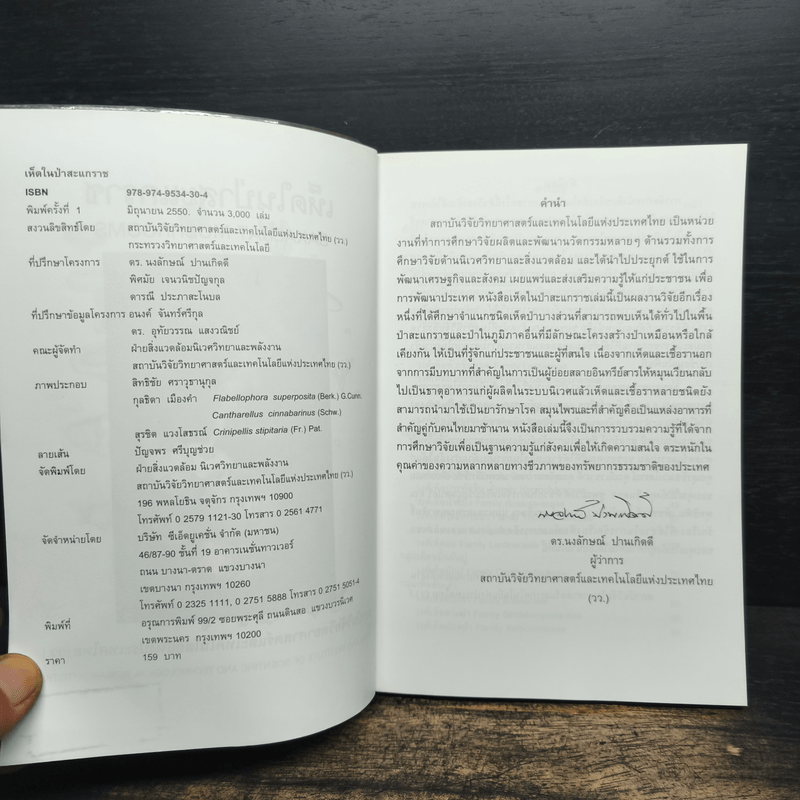 เห็ดในป่าสะแกราช
ISBN 978-974-9534-30-4
พิมพ์ครั้งที่ 1 มิถุนายน 2550. จำนวน 3,000 เล่ม
สงวนลิขสิทธ์โดย สถาบันวิจัยวิทยาศาสตร์และเทคโนโลยีแห่งประเทศไทย (วว.)
กระทรวงวิทยาศาสตร์และเทคโนโลยี
ที่ปรึกษาโครงการ ดร. นงลักษณ์ ปานเกิดดี
พิศมัย เจนวนิชปัญจกุล
ดารณี ประภาสะโนบล
ที่ปรึกษาข้อมูลโครงการ อนงค์ จันทร์ศรีกุล
ดร. อุทัยวรรณ แสงวณิชย์
คณะผู้จัดทำ ฝ่ายสิ่งแวดล้อมนิเวศวิทยาและพลังงาน
สถาบันวิจัยวิทยาศาสตร์และเทคโนโลยีแห่งประเทศไทย (วว.)
ภาพประกอบ สิทธิชัย ศราวุธานุกุล
กุลธิดา เมืองคำ Flabellophora superposita (Berk.) G.Cunn.
Cantharellus cinnabarinus (Schw.)
สุรชิต แวงโสธรณ์ Crinipellis stipitaria (Fr.) Pat.
ลายเส้น ปัญจพร ศรีบุญช่วย
จัดพิมพ์โดย ฝ่ายสิ่งแวดล้อม นิเวศวิทยาและพลังงาน
สถาบันวิจัยวิทยาศาสตร์และเทคโนโลยีแห่งประเทศไทย (วว.)
196 พหลโยธิน จตุจักร กรุงเทพฯ 10900
โทรศัพท์ 0 2579 1121-30 โทรสาร 0 2561 4771
จัดจำหน่ายโดย บริษัท ซีเอ็ดยูเคชั่น จำกัด (มหาชน)
46/87-90 ชั้นที่ 19 อาคารเนชั่นทาวเวอร์
ถนน บางนา-ตราด แขวงบางนา
เขตบางนา กรุงเทพฯ 10260
โทรศัพท์ 0 2325 1111, 0 2751 5888 โทรสาร 0 2751 5051-4
พิมพ์ที่ อรุณการพิมพ์ 99/2 ซอยพระศุลี ถนนดินสอ แขวงบวรนิเวศ
เขตพระนคร กรุงเทพฯ 10200
ราคา 159 บาท
คำนำ
สถาบันวิจัยวิทยาศาสตร์และเทคโนโลยีแห่งประเทศไทย เป็นหน่วย
งานที่ทำการศึกษาวิจัยผลิตและพัฒนานวัตกรรมหลายๆ ด้านรวมทั้งการ
ศึกษาวิจัยด้านนิเวศวิทยาและสิ่งแวดล้อม และได้นำไปประยุกต์ ใช้ในการ
พัฒนาเศรษฐกิจและสังคม เผยแพร่และส่งเสริมความรู้ให้แก่ประชาชน เพื่อ
การพัฒนาประเทศ หนังสือเห็ดในป่าสะแกราชเล่มนี้เป็นผลงานวิจัยอีกเรื่อง
หนึ่งที่ได้ศึกษาจำแนกชนิดเห็ดป่าบางส่วนที่สามารถพบเห็นได้ทั่วไปในพื้น
ป่าสะแกราชและป่าในภูมิภาคอื่นที่มีลักษณะโครงสร้างป่าเหมือนหรือใกล้
เคียงกัน ให้เป็นที่รู้จักแก่ประชาชนและผู้ที่สนใจ เนื่องจากเห็ดและเชื้อรานอก
จากการมีบทบาทที่สำคัญในการเป็นผู้ย่อยสลายอินทรีย์สารให้หมุนเวียนกลับ
ไปเป็นธาตุอาหารแก่ผู้ผลิตในระบบนิเวศแล้วเห็ดและเชื้อราหลายชนิดยัง
สามารถนำมาใช้เป็นยารักษาโรค สมุนไพรและที่สำคัญคือเป็นแหล่งอาหารที่
สำคัญคู่กับคนไทยมาช้านาน หนังสือเล่มนี้จึงเป็นการรวบรวมความรู้ที่ได้จาก
การศึกษาวิจัยเพื่อเป็นฐานความรู้แก่สังคมเพื่อให้เกิดความสนใจ ตระหนักใน
คุณค่าของความหลากหลายทางชีวภาพของทรัพยากรธรรมชาติของประเทศ
ดร.นงลักษณ์ ปานเกิดดี
ผู้ว่าการ
สถาบันวิจัยวิทยาศาสตร์และเทคโนโลยีแห่งประเทศไทย
(วว.)